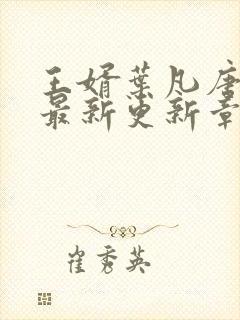 王婿葉凡唐
最新更新章
崔秀英